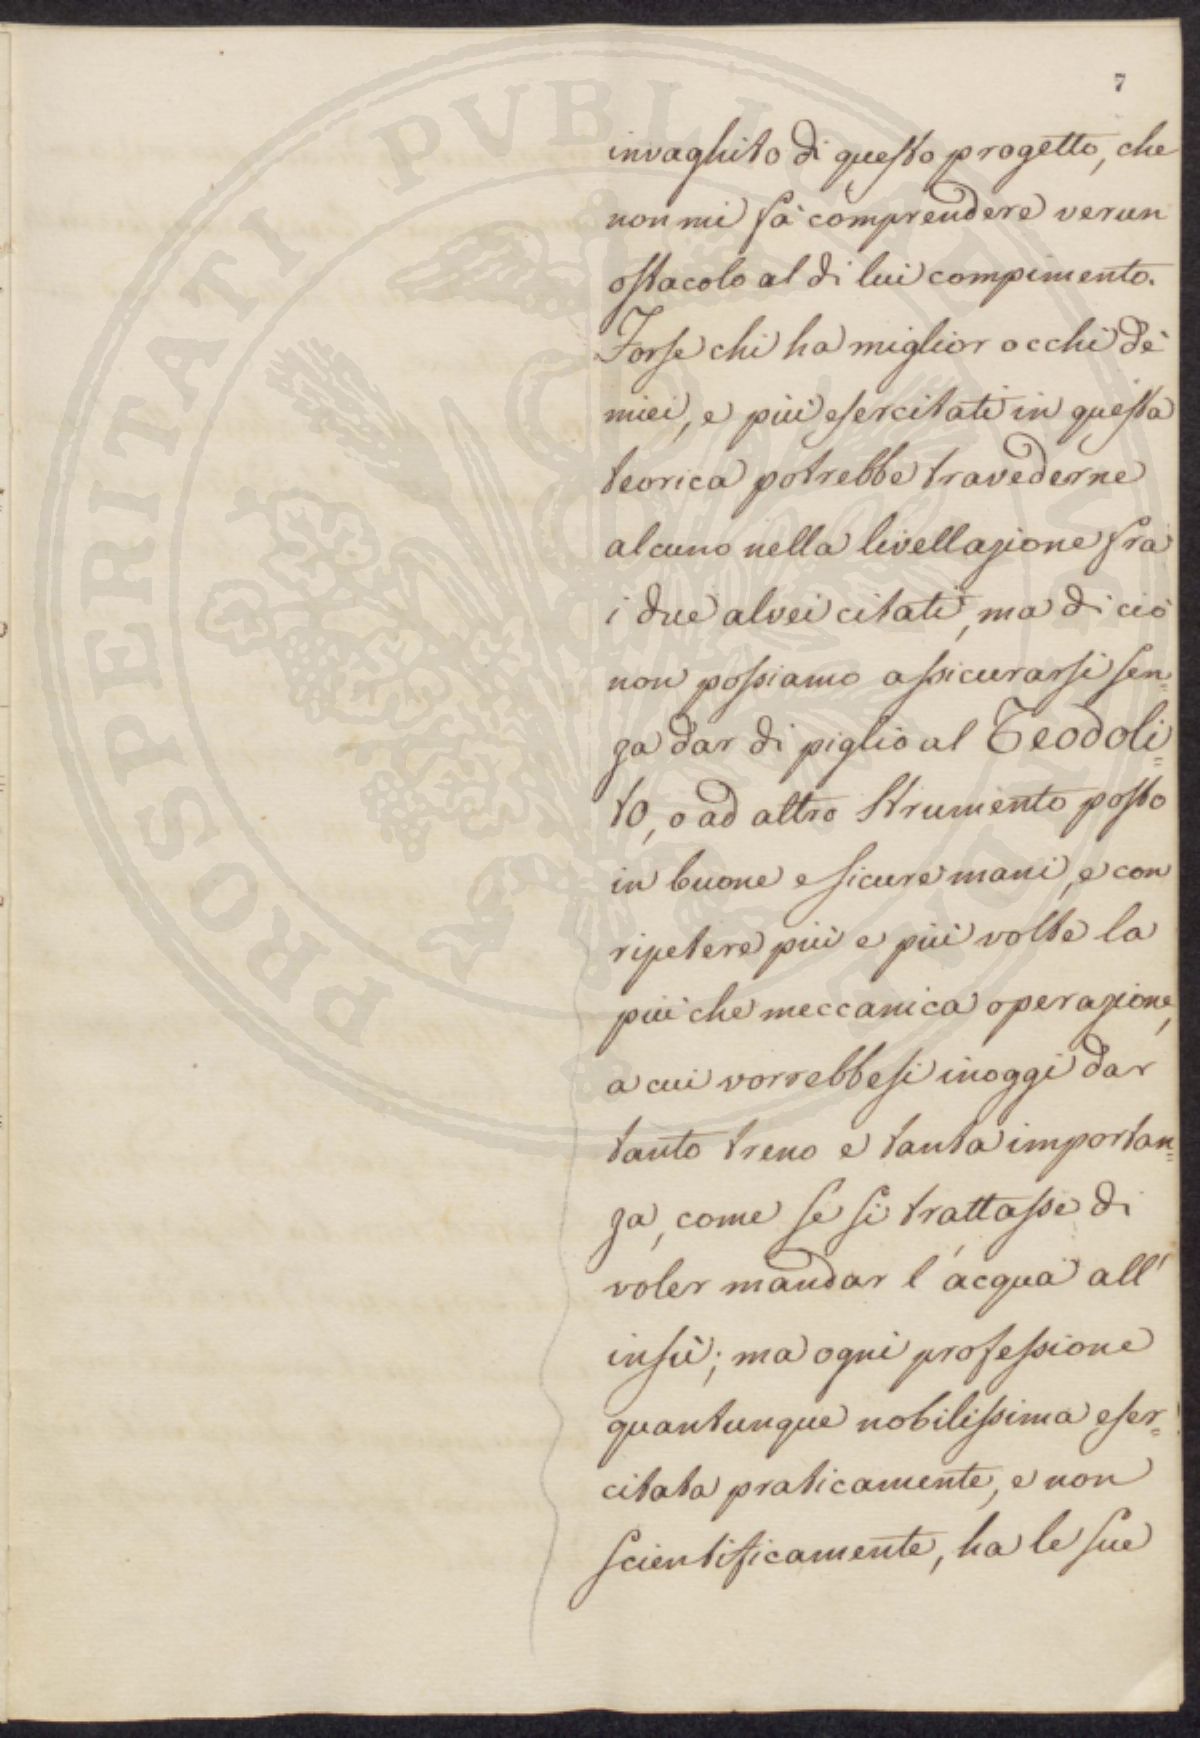 7
invaghito di questo progetto, che
non mi fà comprendere verun
ostacolo al di lui compimento.
Forse chi ha miglior occhi de'
miei, e più esercitati in questa
teorica potrebbe travederne
alcuno nella livellazione frà
i due alvei citati, ma di ciò
non possiamo assicurarsi sen=
za dar di piglio al Teodoli=
to, o ad altro Strumento posto
in buone e sicure mani, e con
ripetere più e più volte la
più che meccanica operazione,
a cui vorrebbesi inoggi dar
tanto treno e tanta importan=
za, come se si trattasse di
voler mandar l'acqua all'
insù; ma ogni professione
quantunque nobilissima eser=
citata praticamente, e non
scientificamente, ha le sue
PROSPERITATI PVBLICAE AVGENDAE